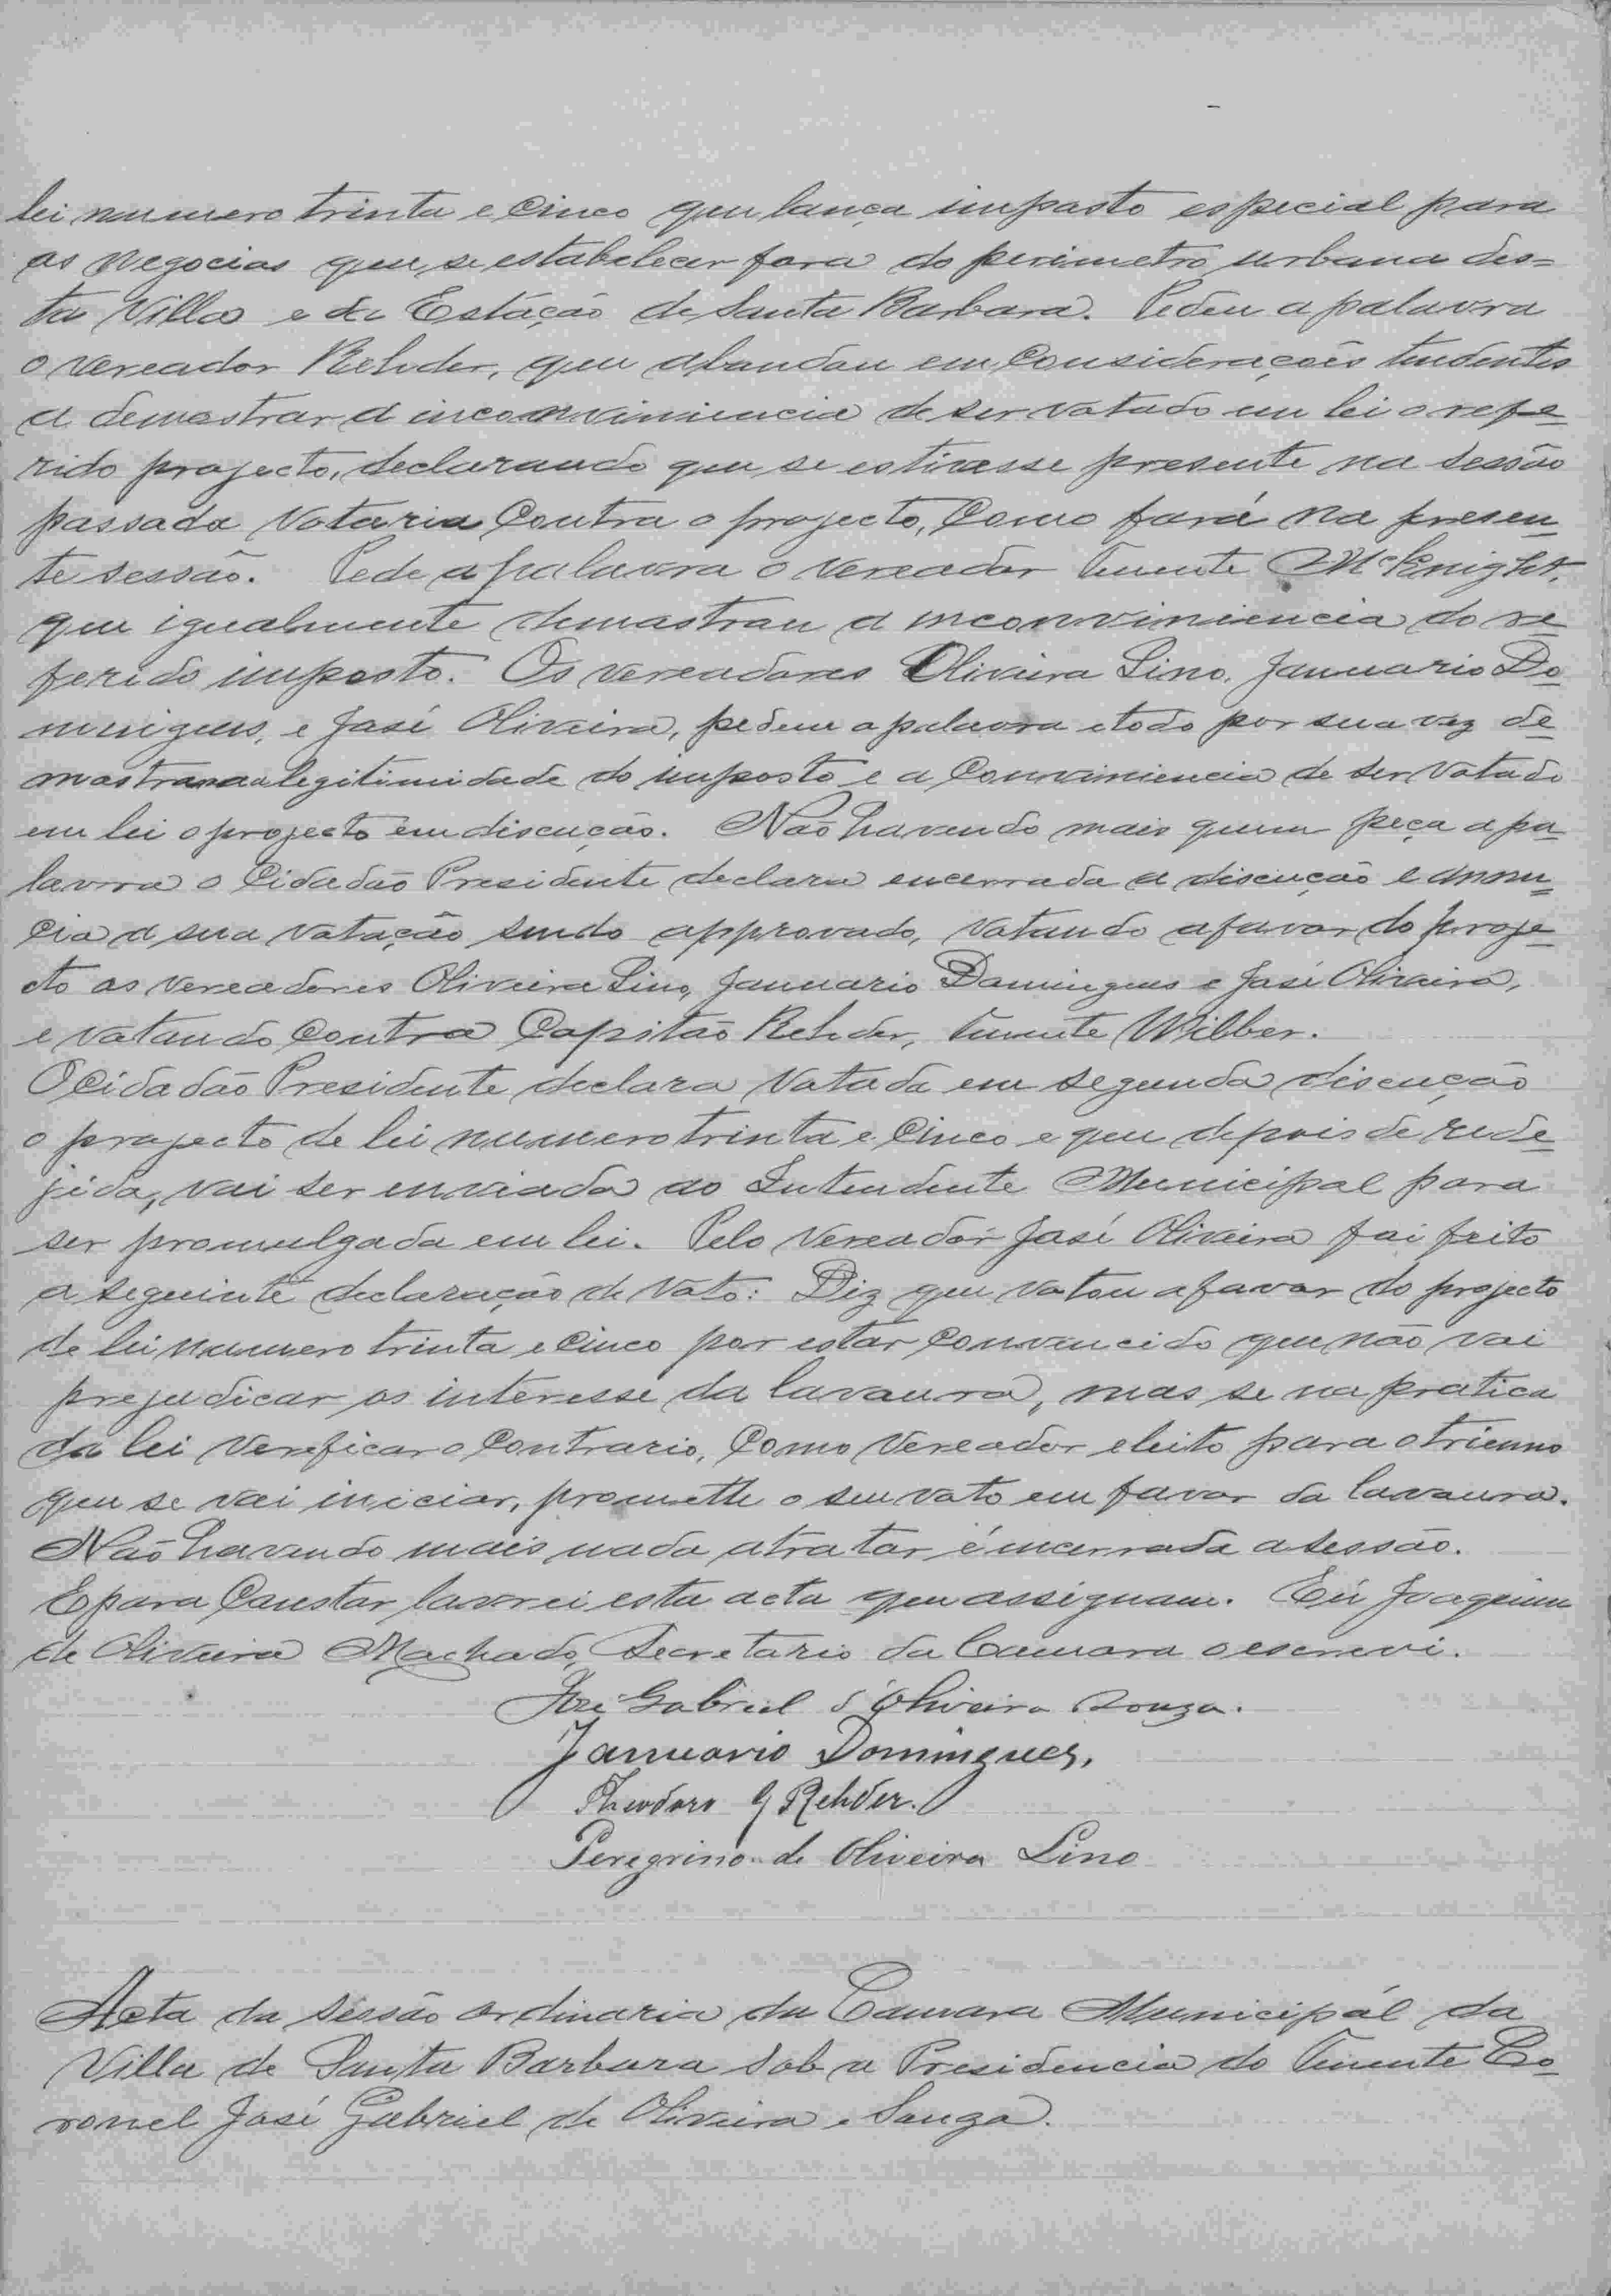 lei numero trinta e cinco que lança imposto especial para
os negocios que se estabelecer fora do perimetro urbano des=
ta Villa e da Estação de Santa Barbara. Pedeu a palavra
o vereador Rehder, que abundou em considerações tendentes
a demostrar a inconviniencia de ser votado em lei o refe
rido projecto, declarando que se estivesse presente na sessão
passada votaria contra o projecto, como fará na presen
te sessão. Pede a palavra o vereador Tenente McKnight,
que igualmente demostrou a inconviniencia do re
ferido imposto. Os vereadores Oliveira Lino, Januario Do
mingues, e José Oliveira, pedem a palavra e todo por sua vez de
mostraram a legitimidade do imposto e a conviniencia de ser votado
em lei o projecto em discução. Não havendo mais quem peça a pa
lavra o Cidadão Presidente declara encerrada a discução e annun
cia a sua votação sendo approvado, votando a favor do proje
cto os vereadores Oliveira Lino, Januario Domingues e José Oliveira,
e votando contra Capitão Rehder, Tenente Wilber.
O Cidadão Presidente declara votada em segunda discução
o projecto de lei numero trinta e cinco e que depois de rede
jida, vai ser enviada ao Intendente Municipal para
ser promulgada em lei. Pelo vereador José Oliveira foi feito
a seguinte declaração de voto: Diz que votou a favor do projecto
de lei numero trinta e cinco por estar convencido que não vai
prejudicar os interesse da lavoura, mas se na pratica
da lei verificar o contrario, como vereador eleito para o trienno
que se vai iniciar, promette o seu voto em favor da lavoura.
Não havendo mais nada a tratar é encerrada a sessão.
E para constar lavrei esta acta que assignam. Eu Joaquim
de Oliveira Machado, Secretario da Camara o escrevi.
José Gabriel d'Oliveira Souza.
Januario Domingues,
Theodoro G Rehder.
Peregrino de Oliveira Lino
Acta da sessão ordinaria da Camara Municipál da
Villa de Santa Barbara sob a Presidencia do Tenente Co
ronel José Gabriel de Oliveira e Souza.